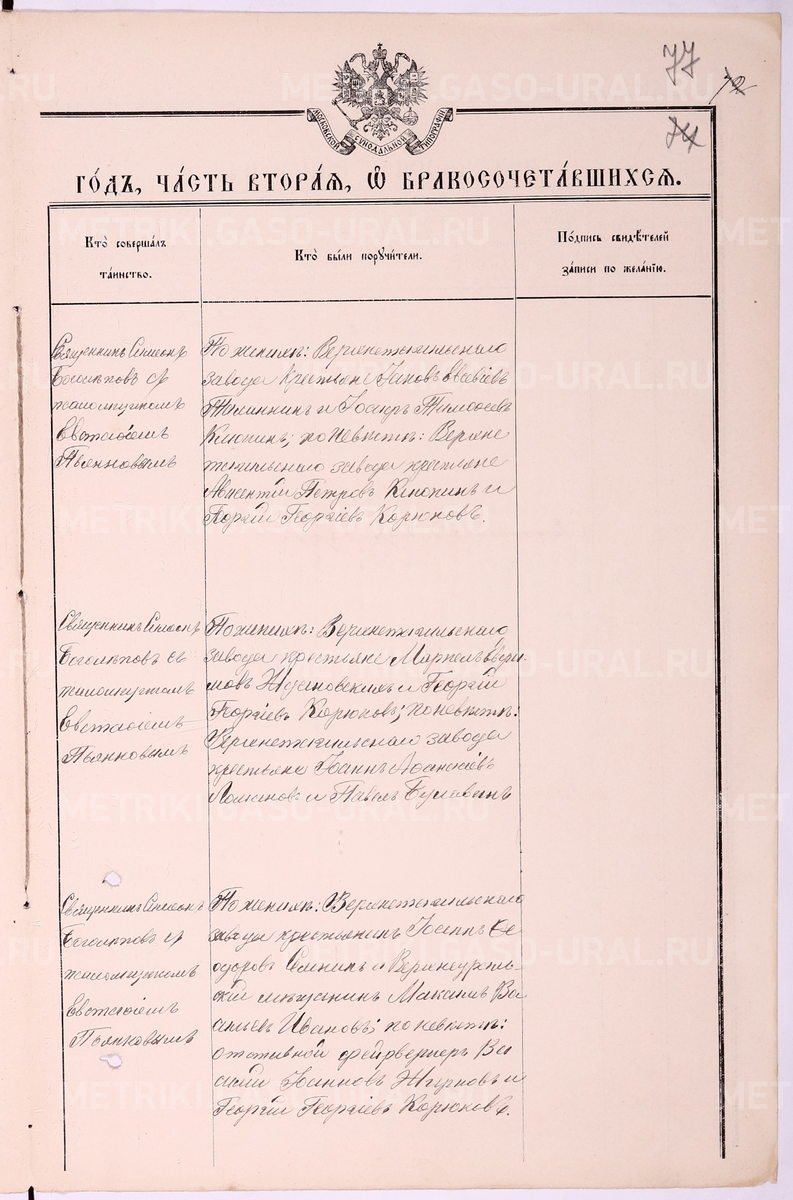 77
72
74
МОСКОВСКОЙ СѴНОДАЛЬНОЙ ТИПОГРАФІИ
ГО́ДЪ, ЧА́СТЬ ВТОРА́Я, Ѿ БРАКОСОЧЕТА́ВШИХСЯ.
Кто̀ соверша́лъ
та́инство.
Кто̀ бы́ли поручи́тели.
По́дпись свидѣ́телей
за́писи по жела́нію.
Священникъ Симеонъ
Боголѣповъ съ
псаломщикомъ
Евстаѳіемъ
Пьянковымъ
По женихѣ: Верхнетагильскаго
завода крестьяне Іаковъ
и Іоаннъ Тимоѳеевъ
Клюкинъ; по невѣстѣ: Верхне
тагильскаго завода крестьяне
Авксентій Петровъ Клюкинъ и
Георгій Георгіевъ Корюковъ.
Священникъ Симеонъ
Боголѣповъ съ
псаломщикомъ
Евстаѳіемъ
Пьянковымъ
По женихѣ: Верхнетагильскаго
завода крестьяне
и Георгій
Георгіевъ Корюковъ; по невѣстѣ:
Верхнетагильскаго завода
крестьяне Іоаннъ Аѳанасіевъ
и Павелъ
Священникъ Симеонъ
Боголѣповъ съ
псаломщикомъ
Евстаѳіемъ
Пьянковымъ
По женихѣ: Верхнетагильскаго
завода крестьянинъ Іоаннъ Ѳе
одоровъ и Верхнеураль
скій мѣщанинъ Максимъ Ва
сильевъ Ивановъ; по невѣстѣ:
отставной фейрверкеръ Ва
силій Іоанновъ и
Георгій Георгіевъ Корюковъ.
METRIKI.GASO-URAL.RU